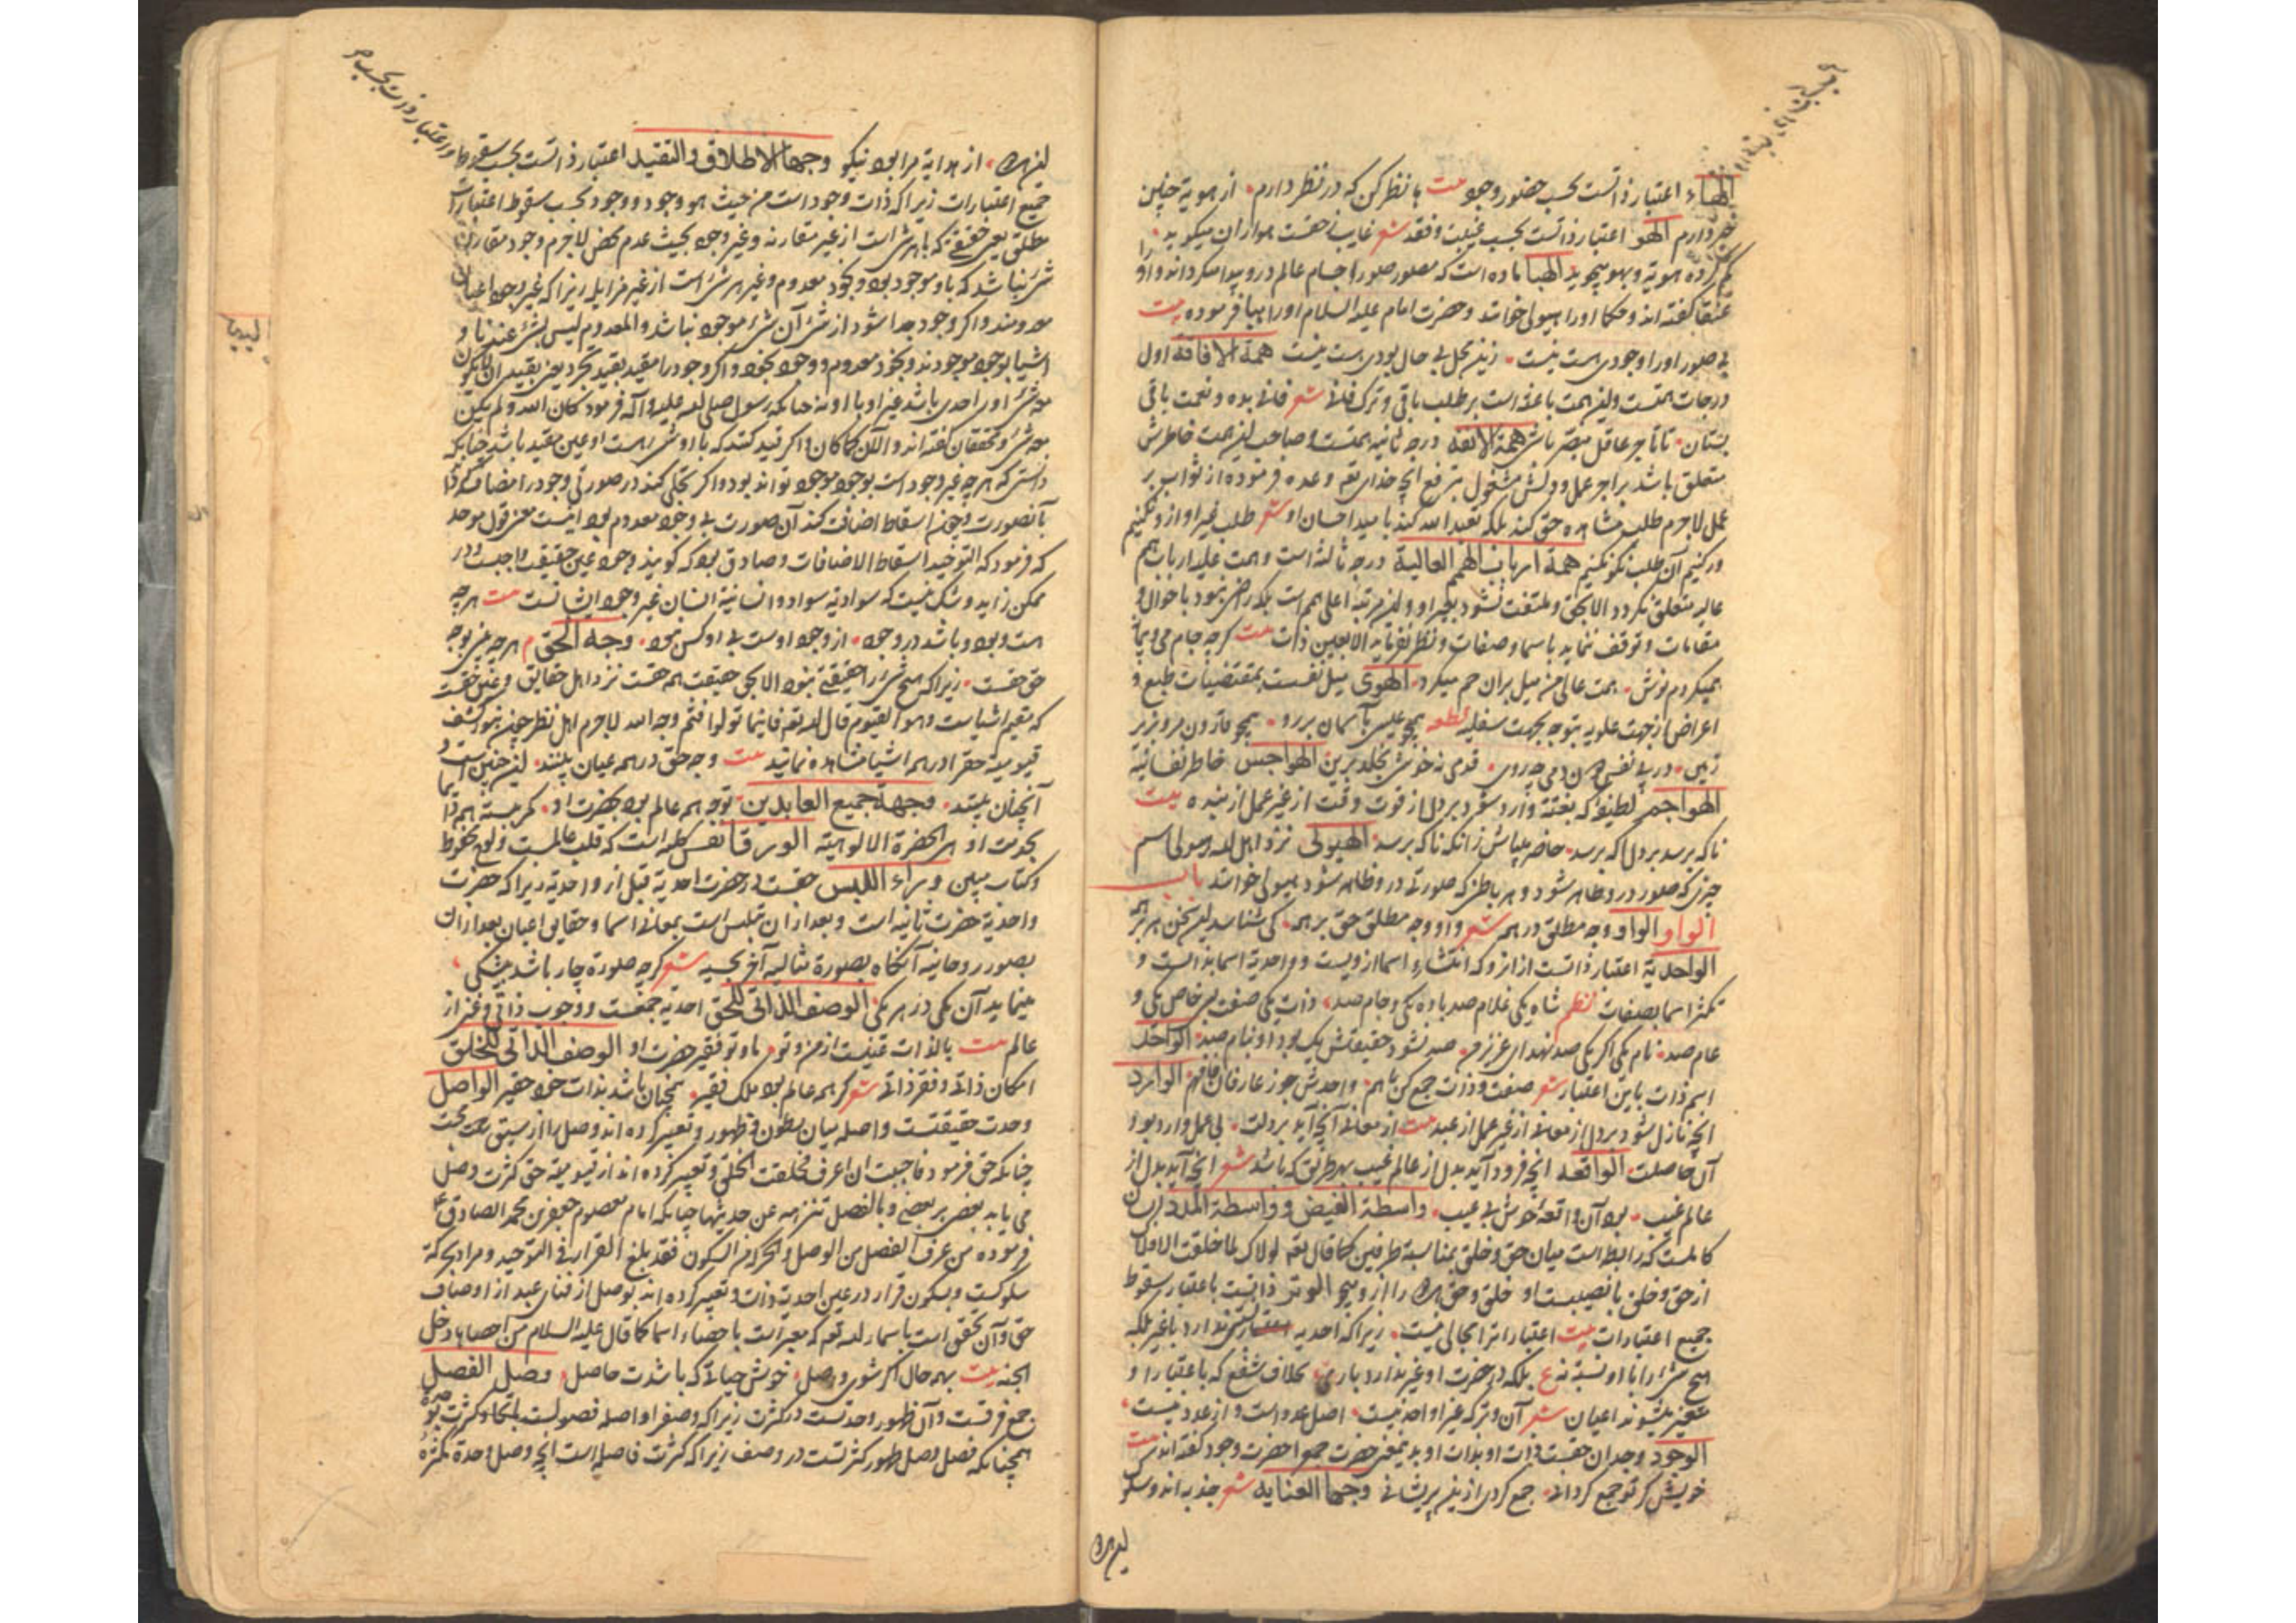 الهاء اعتبار ذاتست بحسب حضور وجود بیت با نظر کن که در نظر دارم از هویة چنین
خبر دارم الهو اعتبار ذاتست بحسب غیبت و فقد شعر غایب از حقست هو ازان میکوید
کم کرده هویة و بهو میجوید الهبا ماده است که مصور صور اجسام عالم درو پیدا میکرداند و اورا
عنقا کفته اند و حکما اورا هیولی خوانند و حضرت امام علیه السلام اورا هبا فرموده بیت
بی صور اورا وجودی هست نیست زین محل بی حال بودی هست نیست همة الافاقة اول
درجات همتست و این همت باعثه است بر طلب باقی و ترک فانی شعر فانی بده و نعمت باقی
بستان تا تاجر عاقل مبصر باشی همة الانفة درجه ثانیه همتست و صاحب این همت خاطرش
متعلق باشد براجر عمل و دلش مشغول بتوقع انچه خدای تع وعده فرموده از ثواب بر
عمل لاجرم طلب مشاهده حق کند بلکه تعبد الله کند بامید احسان او شعر طلب غیر او ازو نکنیم
ور کنیم آن طلب نکو نکنیم همة ارباب الهمم العالیة درجه ثالثه است و همت علیه ارباب همم
عالیه متعلق نکردد الا بحق و ملتفت نشود بغیر او و این مرتبه اعلی همم است که راضی نبود باحوال و
مقامات و توقف ننماید باسما و صفات و نظر نفرماید الا بعین ذات بیت کرچه جام می و پیما
همیکردم نوش همت عالی من میل بران خم میکرد الهوی میل نفست بمقتضیات طبع و
اعراض از جهت علویه بتوجه بجهت سفلیه قطعه همچو عیسی باسمان بررو همچو قارون مرو بزیر
زمین در پی نفس من دمی چه روی قدمی نه خوش بخلد برین الهواجس خاطر نفسانیة
الهواجم لطیفه که بغتة وارد شود بردل از قوت وقت از غیر عمل از بنده بیت
ناکه برسد بردل اکه برسد حاضر میباش زانکه ناکه برسد الهیولی نزد اهل الله هیولی اسم
چیزی که صور درو ظاهر شود و هر باطن که صورتی درو ظاهر شود هیولی خوانند باب
الواو الواو وجه مطلق در همه شعر واو وجه مطلق حق برهمه کی شناسد این سخن هر بر همه
الواحدیة اعتبار ذاتست از انرو که انتشاء اسما از ویست و واحدیة اسما بذاتست و
تکثر اسما بصفات نظم شاه یکی غلام صد باده یکی و جام صد ذات یکی صفت بسی خاص یکی و
عام صد نام یکی اکر یکی صد نهد ای عزیز من صد نشود حقیقتش یک بود او بنام صد الواحد
اسم ذات باین اعتبار شعر صفت و ذات جمع کن باهم واحدش جوز عارفان فافهم الوارد
انچه نازل شود بردل از معانی از غیر عمل از عبد بیت از معانی آنچه آید بردلت بی عمل وارد بود
آن حاصلت الواقعه انچه فرود آید بدل از عالم غیب بهر طریق که باشد شعر انچه آید بدل از
عالم غیب بود آن واقعه خوش بی عیب واسطة الفیض و واسطة المدد انسان
کاملست که رابطه است میان حق و خلق بمناسبة طرفین کما قال تعه لولاک لما خلقت الافلاک
از حق و خلق با نصیبست او خلق و حق را ازو میجو الوتر ذاتست باعتبار سقوط
جمیع اعتبارات بیت اعتبارات را مجالی نیست زیرا که احدیه نسبتی ندارد باغیر بلکه
هیچ شیء را با او نسبة نه ع بلکه در حضرت او غیر ندارد باری بخلاف شفع که باعتبار او
متعین میشوند اعیان شعر آن وتر که غیر او احد نیست اصل عدد است و از عدد نیست
الوجود وجدان حقست ذات او بذات او بدینمعنی حضرت جمع را حضرت وجود کفته اند بیت
خویش کر تو جمع کردانی جمع کردی ازین پریشانی وجها العنایه شعر جذبه اند و سلوک
این هر دو
این هر دو از هدایة مرا بود نیکو وجها الاطلاق والتقیید اعتبار ذاتست بحسب سقوط
و اعتبار ذات بحسب
جمیع اعتبارات زیرا که ذات وجود است من حیث هو وجود و وجود بحسب سقوط اعتبارات
مطلق یعنی حقیقی که باهر شی است از غیر مقارنه و غیر وجود بحیث عدم محض لاجرم وجود مقارن
شی نباشد که باو موجود بود و بخود معدوم و غیر هر شی است از غیر مزایله زیرا که غیر وجود اعیان
معدومند و اکر وجود جدا شود از شی آن شی موجود نباشد والمعدوم لیس بشی عندنا و
اشیا بوجود موجودند و بخود معدوم و وجود بخود و اکر وجود را مقید بقید تجرد یعنی بقید ان لا یکون
معه شی اوی احدی باشد غیر او با او نه چنانکه رسول صلی الله علیه وآله فرمود کان الله ولم یکن
معه شی و محققان کفته اند والآن کما کان و اکر قید کنند که با او شی هست او عین مقید باشد چنانکه
دانستی که هر چه غیر وجود است بوجود موجود تواند بود و اکر تجلی کند در صورتی وجود را مضاف کرداند
بآنصورت و چون اسقاط اضافت کند آن صورت بی وجود معدوم بود اینست معنی قول موحد
که فرمود که التوحید اسقاط الاضافات و صادق بود که کویند وجود عین حقیقت واجبست و در
ممکن زاید و شک نیست که سوادیه سواد و انسانیة انسان غیر وجود ایشانست بیت هرچه
هست و بود و باشد در وجود از وجود اوست بی او کس نبود وجه الحق هر چه بینی بوجه
حق حقست زیرا که هیچ شی را حقیقتی نبود الا بحق حقیقت همه حقست نزد اهل حقایق و عین حقست
که مقیم اشیاست وهو القیوم قال الله تعه فاینما تولوا فثم وجه الله لاجرم اهل نظر چنین نمود کشف
قیومیة حق را در همه اشیا مشاهده نمایند بیت وجه حق در همه عیان بینند این چنین است و
آنچنان بینند وجهة جمیع العابدین توجه همه عالم بود بحضرت او کمر بسته همه دایما
بخدمت او هی الحضرة الالوهیة الورقا نفس کلیه است که قلب عالمست و لوح محفوظ
و کتاب مبین وراء اللبس حقست در حضرت احدیة قبل از واحدیة زیرا که حضرت
واحدیة حضرت ثانیه است و بعد ازان تلبس است بمعانی اسما و حقایق اعیان بعد ازان
بصور روحانیه آنکاه بصورة مثالیه آخر بحسیه شعر کرچه صورة چار باشد بیشکی
مینماید آن یکی در هر یکی الوصف الذاتی للحق احدیه جمعست و وجوب ذاتی و غنی از
عالم بیت بالذات غنیست از من و تو ما و تو فقیر حضرت او الوصف الذاتی للخلق
امکان ذاتی و فقر ذاتی شعر کرهمه عالم بود ملک فقیر همچنان باشد بذات خود حقیر الواصل
وحدت حقیقتست واصله میان بطون و ظهور و تعبیر کرده اند وصل را از سبق رحمت
چنانکه حق فرمود فاحببت ان اعرف فخلقت الخلق و تعبیر کرده اند از قیومیة حق کثرت وصل
می یابد بعضی ببعضی و بالفصل تنزهه عن حدیثها چنانکه امام معصوم جعفر بن محمد الصادق ع
فرموده من عرف الفصل من الوصل والحرکة من السکون فقد بلغ القرار فی التوحید و مراد بحرکة
سلوکست و بسکون قرار در عین احدیة ذات و تعبیر کرده اند بوصل از فنای عبد از اوصاف
حق و آن تحقق است باسماء الله تعه که معبر است باحصاء اسما کما قال علیه السلام من احصاها دخل
الجنه بیت بهر حال اکر شوی واصل خوش حیاتی که باشدت حاصل وصل الفصل
جمع فرقست و آن ظهور وحدتست در کثرت زیرا که وصف او اصله فصولست باتحاد کثرت بوحدة
همچنانکه فصل وصل ظهور کثرتست در وصف زیرا که کثرت فاصله است انچه وصل وحدة بکثرة